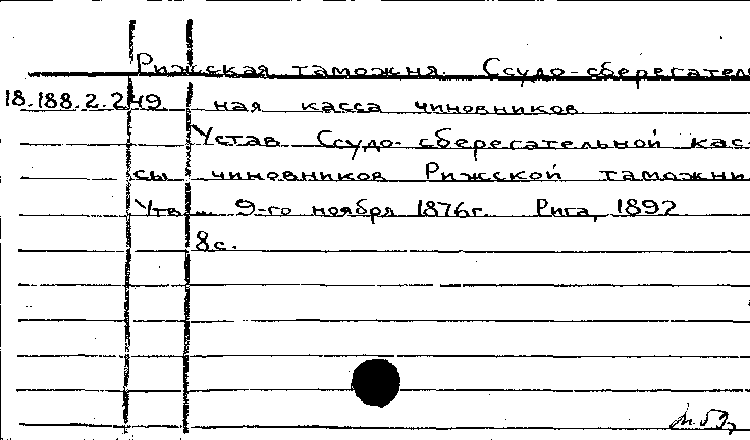 Рижская таможня. Ссудо-сберегатель
18.188.2.249 ная касса чиновников
Устав Ссудо-сберегательной кас-
сы чиновников Рижской таможни
Утв... 9-го ноября 1876г. Рига, 1892
8с.